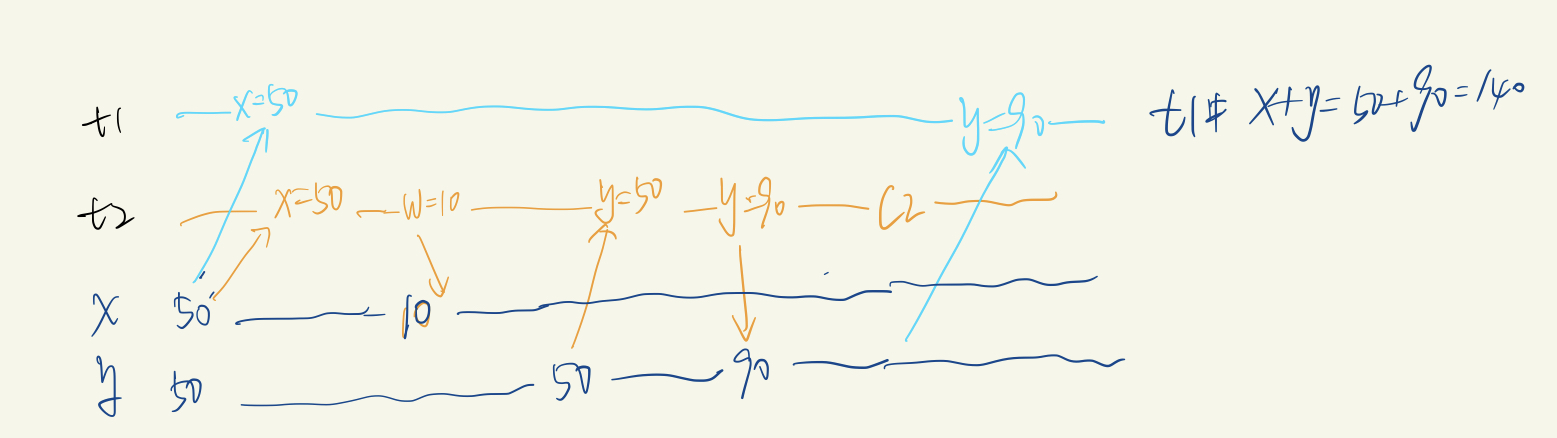 t1 x=50 y=90 t1中 x+y=50+90=140
t2 x=50 w=10 y=50 y=90 C2
x 50 10
y 50 50 90